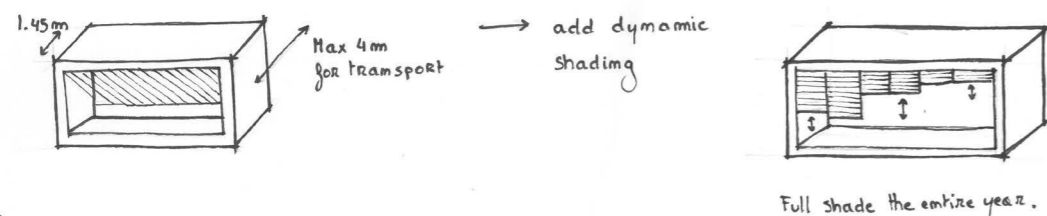 1.45m
Max 4m
for transport
add dynamic
shading
Full shade the entire year.